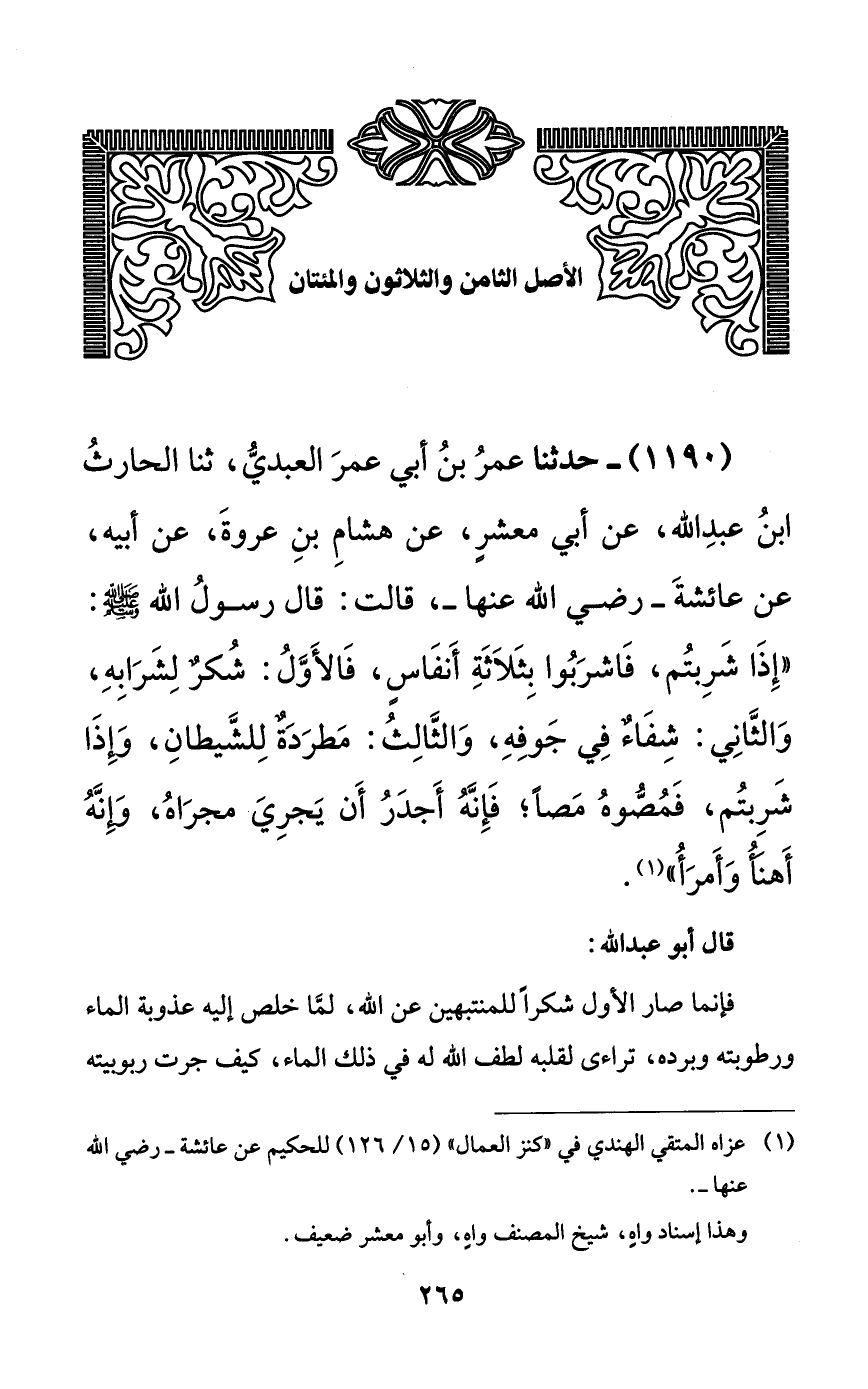 الأصل الثامن والثلاثون والمئتان
(١١٩٠) ـ حدثنا عمرُ بنُ أبي عمرَ العبديُّ، ثنا الحارثُ
ابنُ عبدِالله، عن أبي معشرٍ، عن هشامِ بنِ عروةَ، عن أبيه،
عن عائشةَ ـ رضي الله عنها ـ، قالت: قال رسولُ الله ﷺ:
«إِذَا شَرِبتُم، فَاشرَبُوا بِثَلاَثَةِ أَنفَاسٍ، فَالأَوَّلُ: شُكرٌ لِشَرَابِهِ،
وَالثَّانِي: شِفَاءٌ فِي جَوفِهِ، وَالثَّالِثُ: مَطرَدَةٌ لِلشَّيطانِ، وَإِذَا
شَرِبتُم، فَمُصُّوهُ مَصاً؛ فَإِنَّهُ أَجدَرُ أَن يَجرِيَ مجرَاهُ، وَإِنَّهُ
أَهنَأُ وَأَمرَأُ»(١).
قال أبو عبدالله:
فإنما صار الأول شكراً للمنتبهين عن الله، لمَّا خلص إليه عذوبة الماء
ورطوبته وبرده، تراءى لقلبه لطف الله له في ذلك الماء، كيف جرت ربوبيته
(١) عزاه المتقي الهندي في «كنز العمال» (١٥/ ١٢٦) للحكيم عن عائشة ـ رضي الله
عنها ـ.
وهذا إسناد واهٍ، شيخ المصنف واهٍ، وأبو معشر ضعيف.
٢٦٥